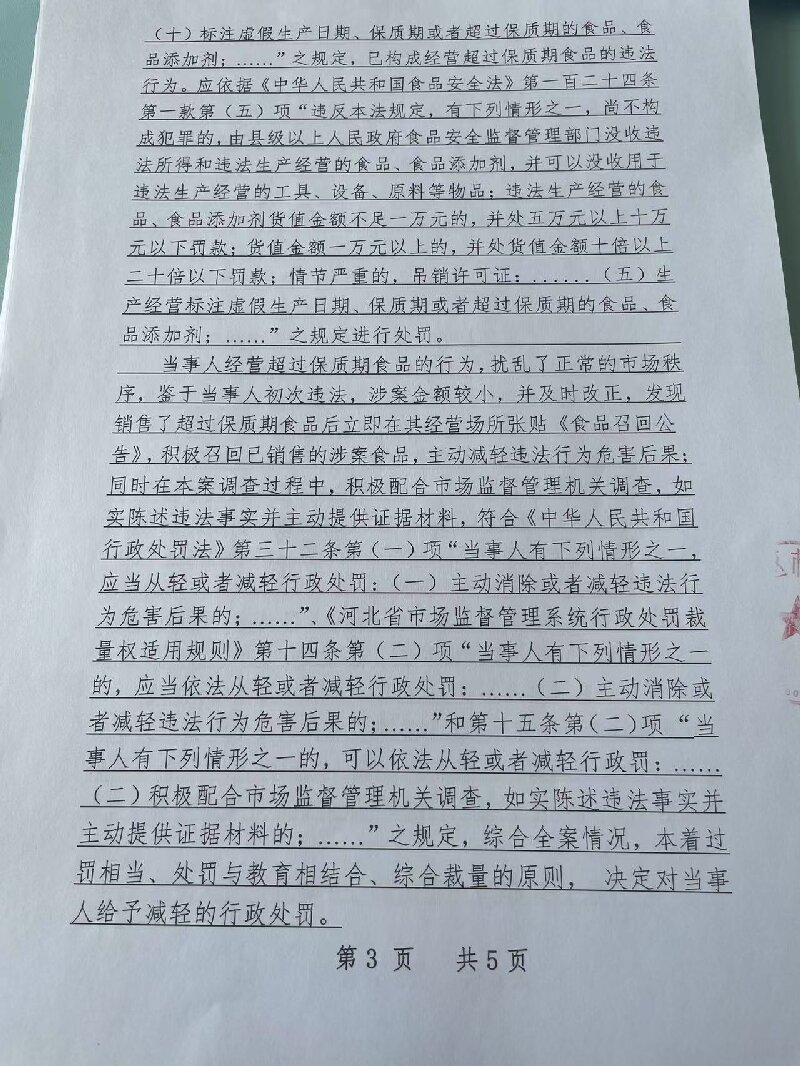 （十）标注虚假生产日期、保质期或者超过保质期的食品、食
品添加剂；......”之规定，已构成经营超过保质期食品的违法
行为。应依据《中华人民共和国食品安全法》第一百二十四条
第一款第（五）项“违反本法规定，有下列情形之一，尚不构
成犯罪的，由县级以上人民政府食品安全监督管理部门没收违
法所得和违法生产经营的食品、食品添加剂，并可以没收用于
违法生产经营的工具、设备、原料等物品；违法生产经营的食
品、食品添加剂货值金额不足一万元的，并处五万元以上十万
元以下罚款；货值金额一万元以上的，并处货值金额十倍以上
二十倍以下罚款；情节严重的，吊销许可证：......（五）生
产经营标注虚假生产日期、保质期或者超过保质期的食品、食
品添加剂；......”之规定进行处罚。
当事人经营超过保质期食品的行为，扰乱了正常的市场秩
序，鉴于当事人初次违法，涉案金额较小，并及时改正，发现
销售了超过保质期食品后立即在其经营场所张贴《食品召回公
告》，积极召回已销售的涉案食品，主动减轻违法行为危害后果；
同时在本案调查过程中，积极配合市场监督管理机关调查，如
实陈述违法事实并主动提供证据材料，符合《中华人民共和国
行政处罚法》第三十二条第（一）项“当事人有下列情形之一，
应当从轻或者减轻行政处罚：（一）主动消除或者减轻违法行
为危害后果的；......”、《河北省市场监督管理系统行政处罚裁
量权适用规则》第十四条第（二）项“当事人有下列情形之一
的，应当依法从轻或者减轻行政处罚：......（二）主动消除或
者减轻违法行为危害后果的；......”和第十五条第（二）项 “当
事人有下列情形之一的，可以依法从轻或者减轻行政罚：......
（二）积极配合市场监督管理机关调查，如实陈述违法事实并
主动提供证据材料的；......”之规定，综合全案情况，本着过
罚相当、处罚与教育相结合、综合裁量的原则， 决定对当事
人给予减轻的行政处罚。
第3 页 共5页